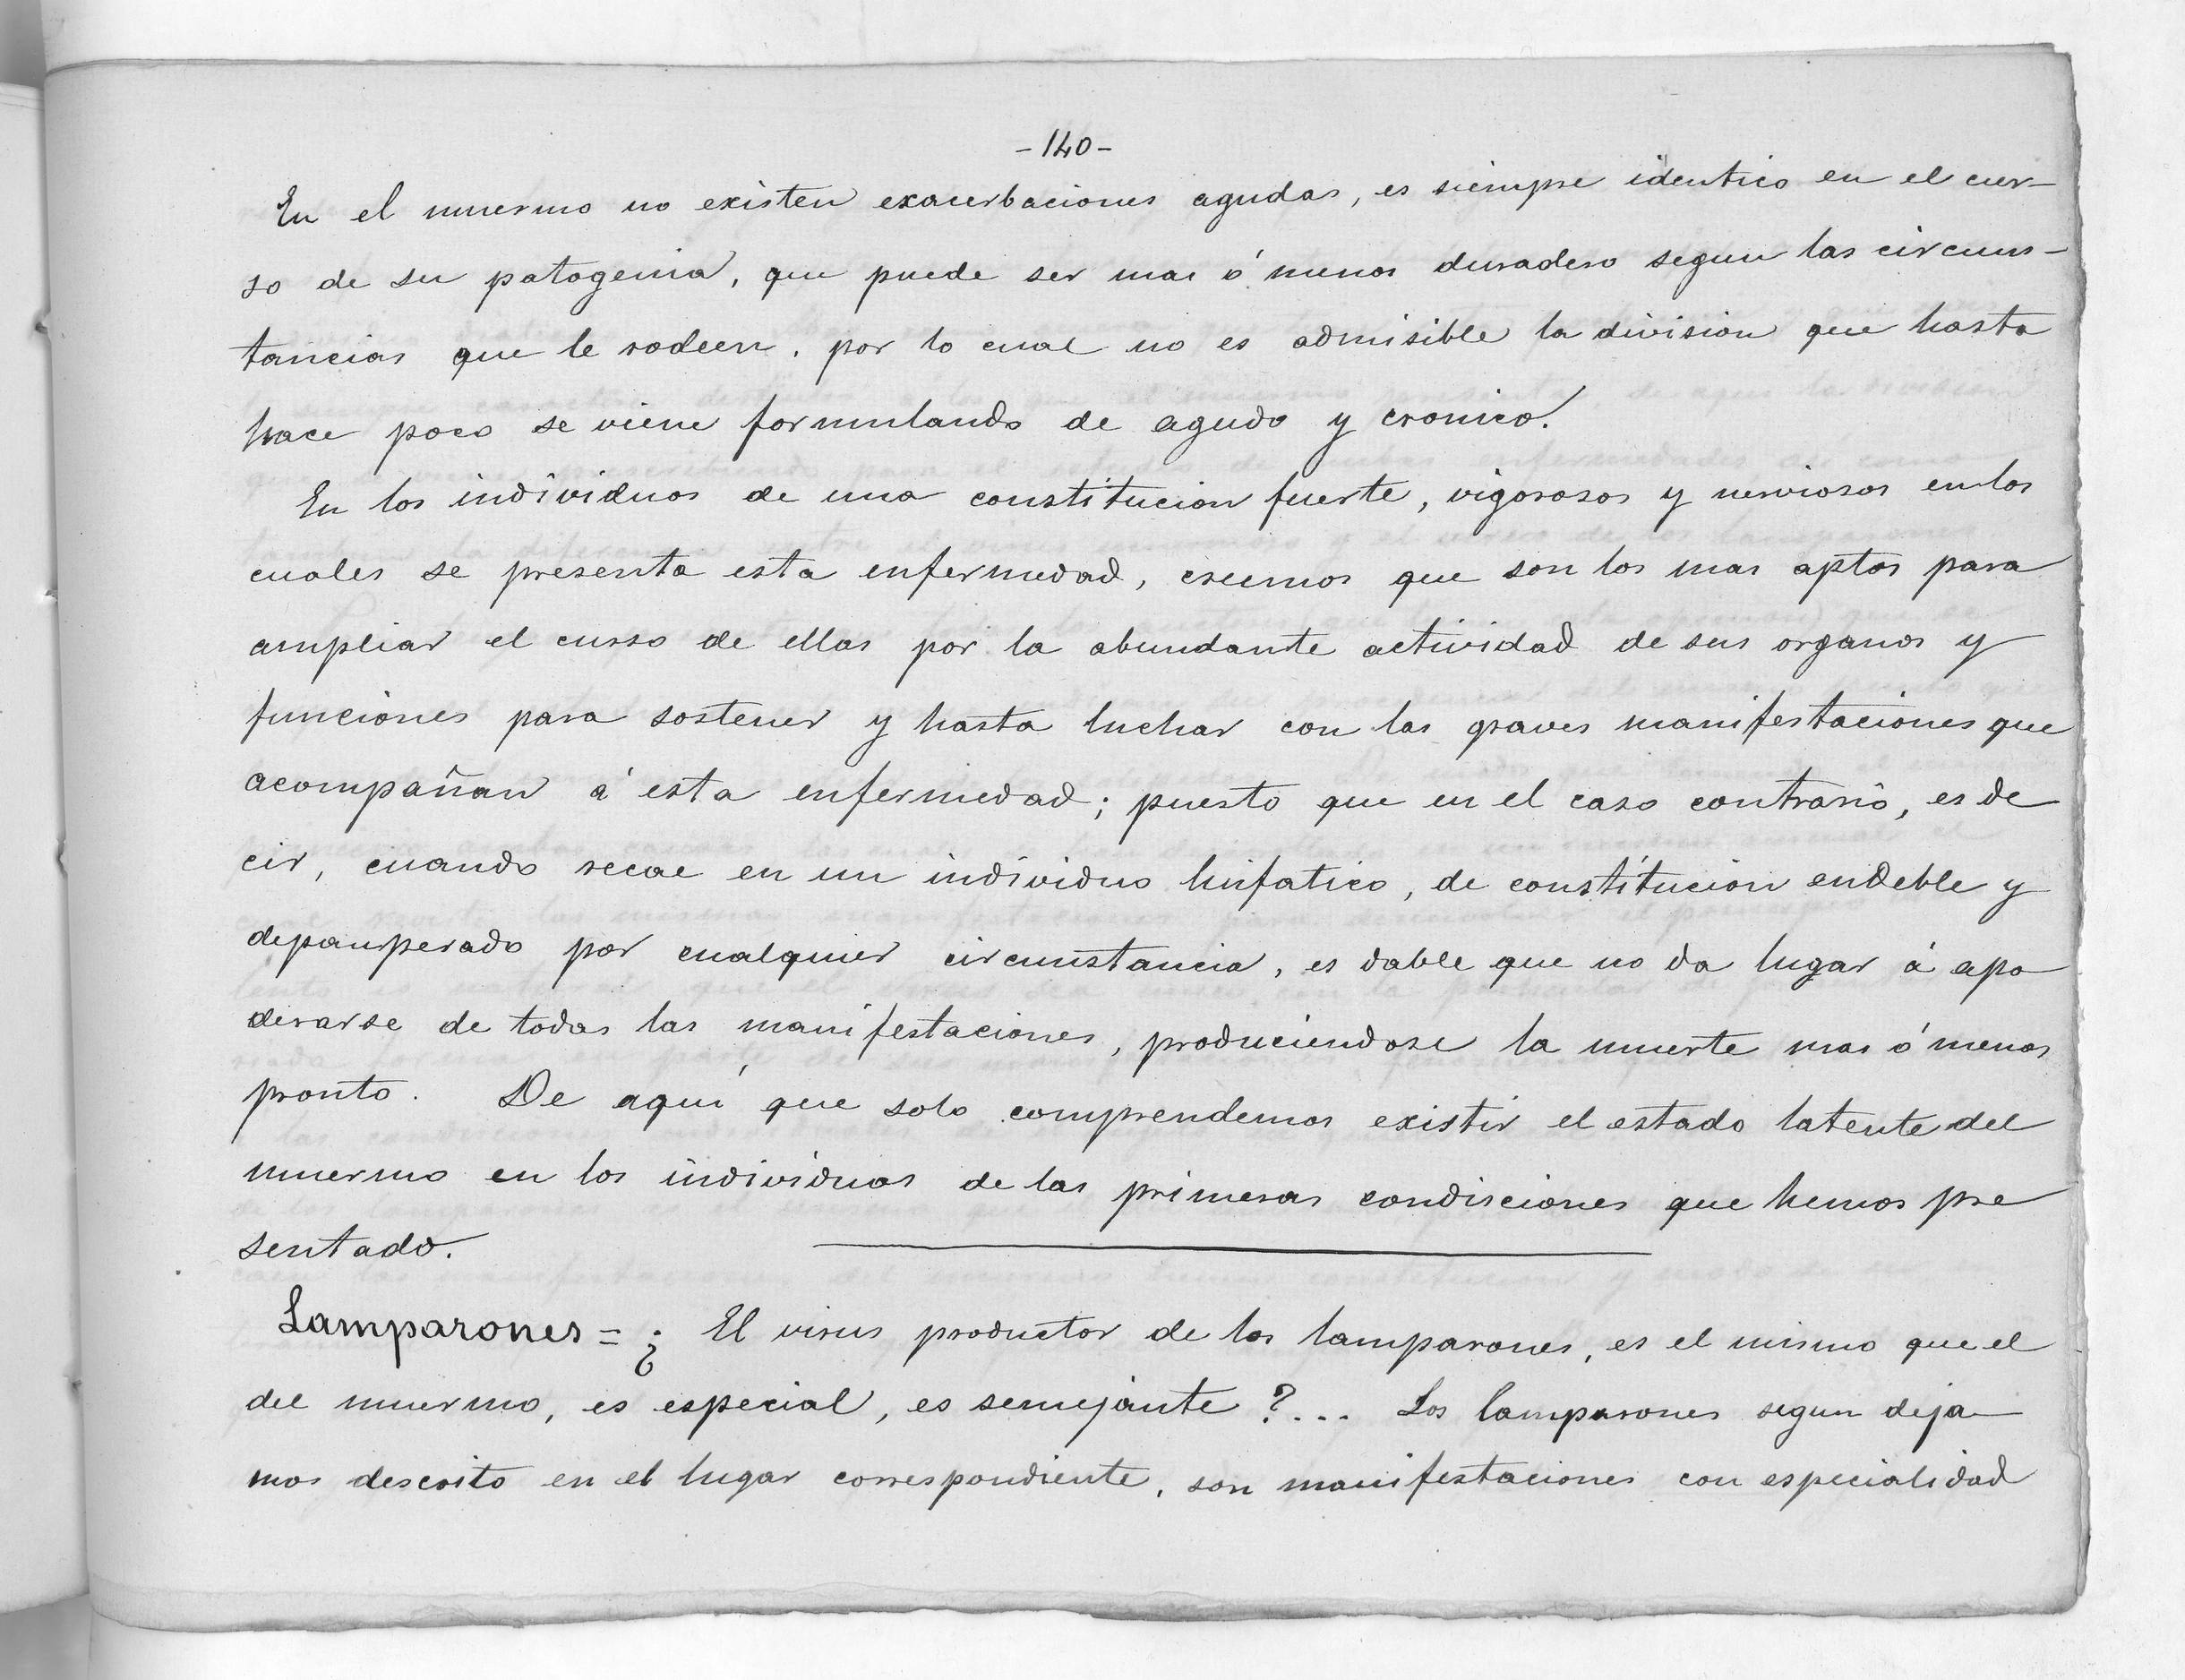 -140-
En el muermo no existen exacerbaciones agudas, es siempre identico en el cur-
so de su patogenia, que puede ser mas ó menos duradero segun las circuns-
tancias que le rodeen, por lo cual no es admisible la division que hasta
hace poco se viene formulando de agudo y cronico.
En los individuos de una constitucion fuerte, vigorosos y nerviosos en los
cuales se presenta esta enfermedad, creemos que son los mas aptos para
ampliar el curso de ellas por la abundante actividad de sus organos y
funciones para sostener y hasta luchar con las graves manifestaciones que
acompañan á esta enfermedad; puesto que en el caso contrario, es de
cir, cuando recae en un individuo linfatico, de constitucion endeble y
depauperado por cualquier circunstancia, es dable que no da lugar á apo
derarse de todas las manifestaciones, produciendose la muerte mas ó menos
pronto. De aquí que solo comprendemos existir el estado latente del
muermo en los individuos de las primeras condiciones que hemos pre
sentado.
Lamparones = ¿ El virus productor de los lamparones, es el mismo que el
del muermo, es especial, es semejante ?... Los lamparones segun deja
mos descrito en el lugar correspondiente, son manifestaciones con especialidad